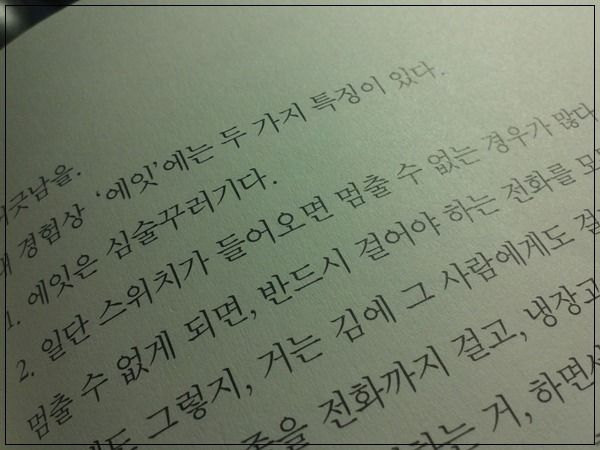 어긋남을.
내 경험상 ‘에잇’에는 두 가지 특징이 있다.
1. 에잇은 심술꾸러기다.
2. 일단 스위치가 들어오면 멈출 수 없는 경우가 많다
멈출 수 없게 되면, 반드시 걸어야 하는 전화를
그렇지, 거는 김에 그 사람에게도
전화까지 걸고, 냉장고
거, 하면서